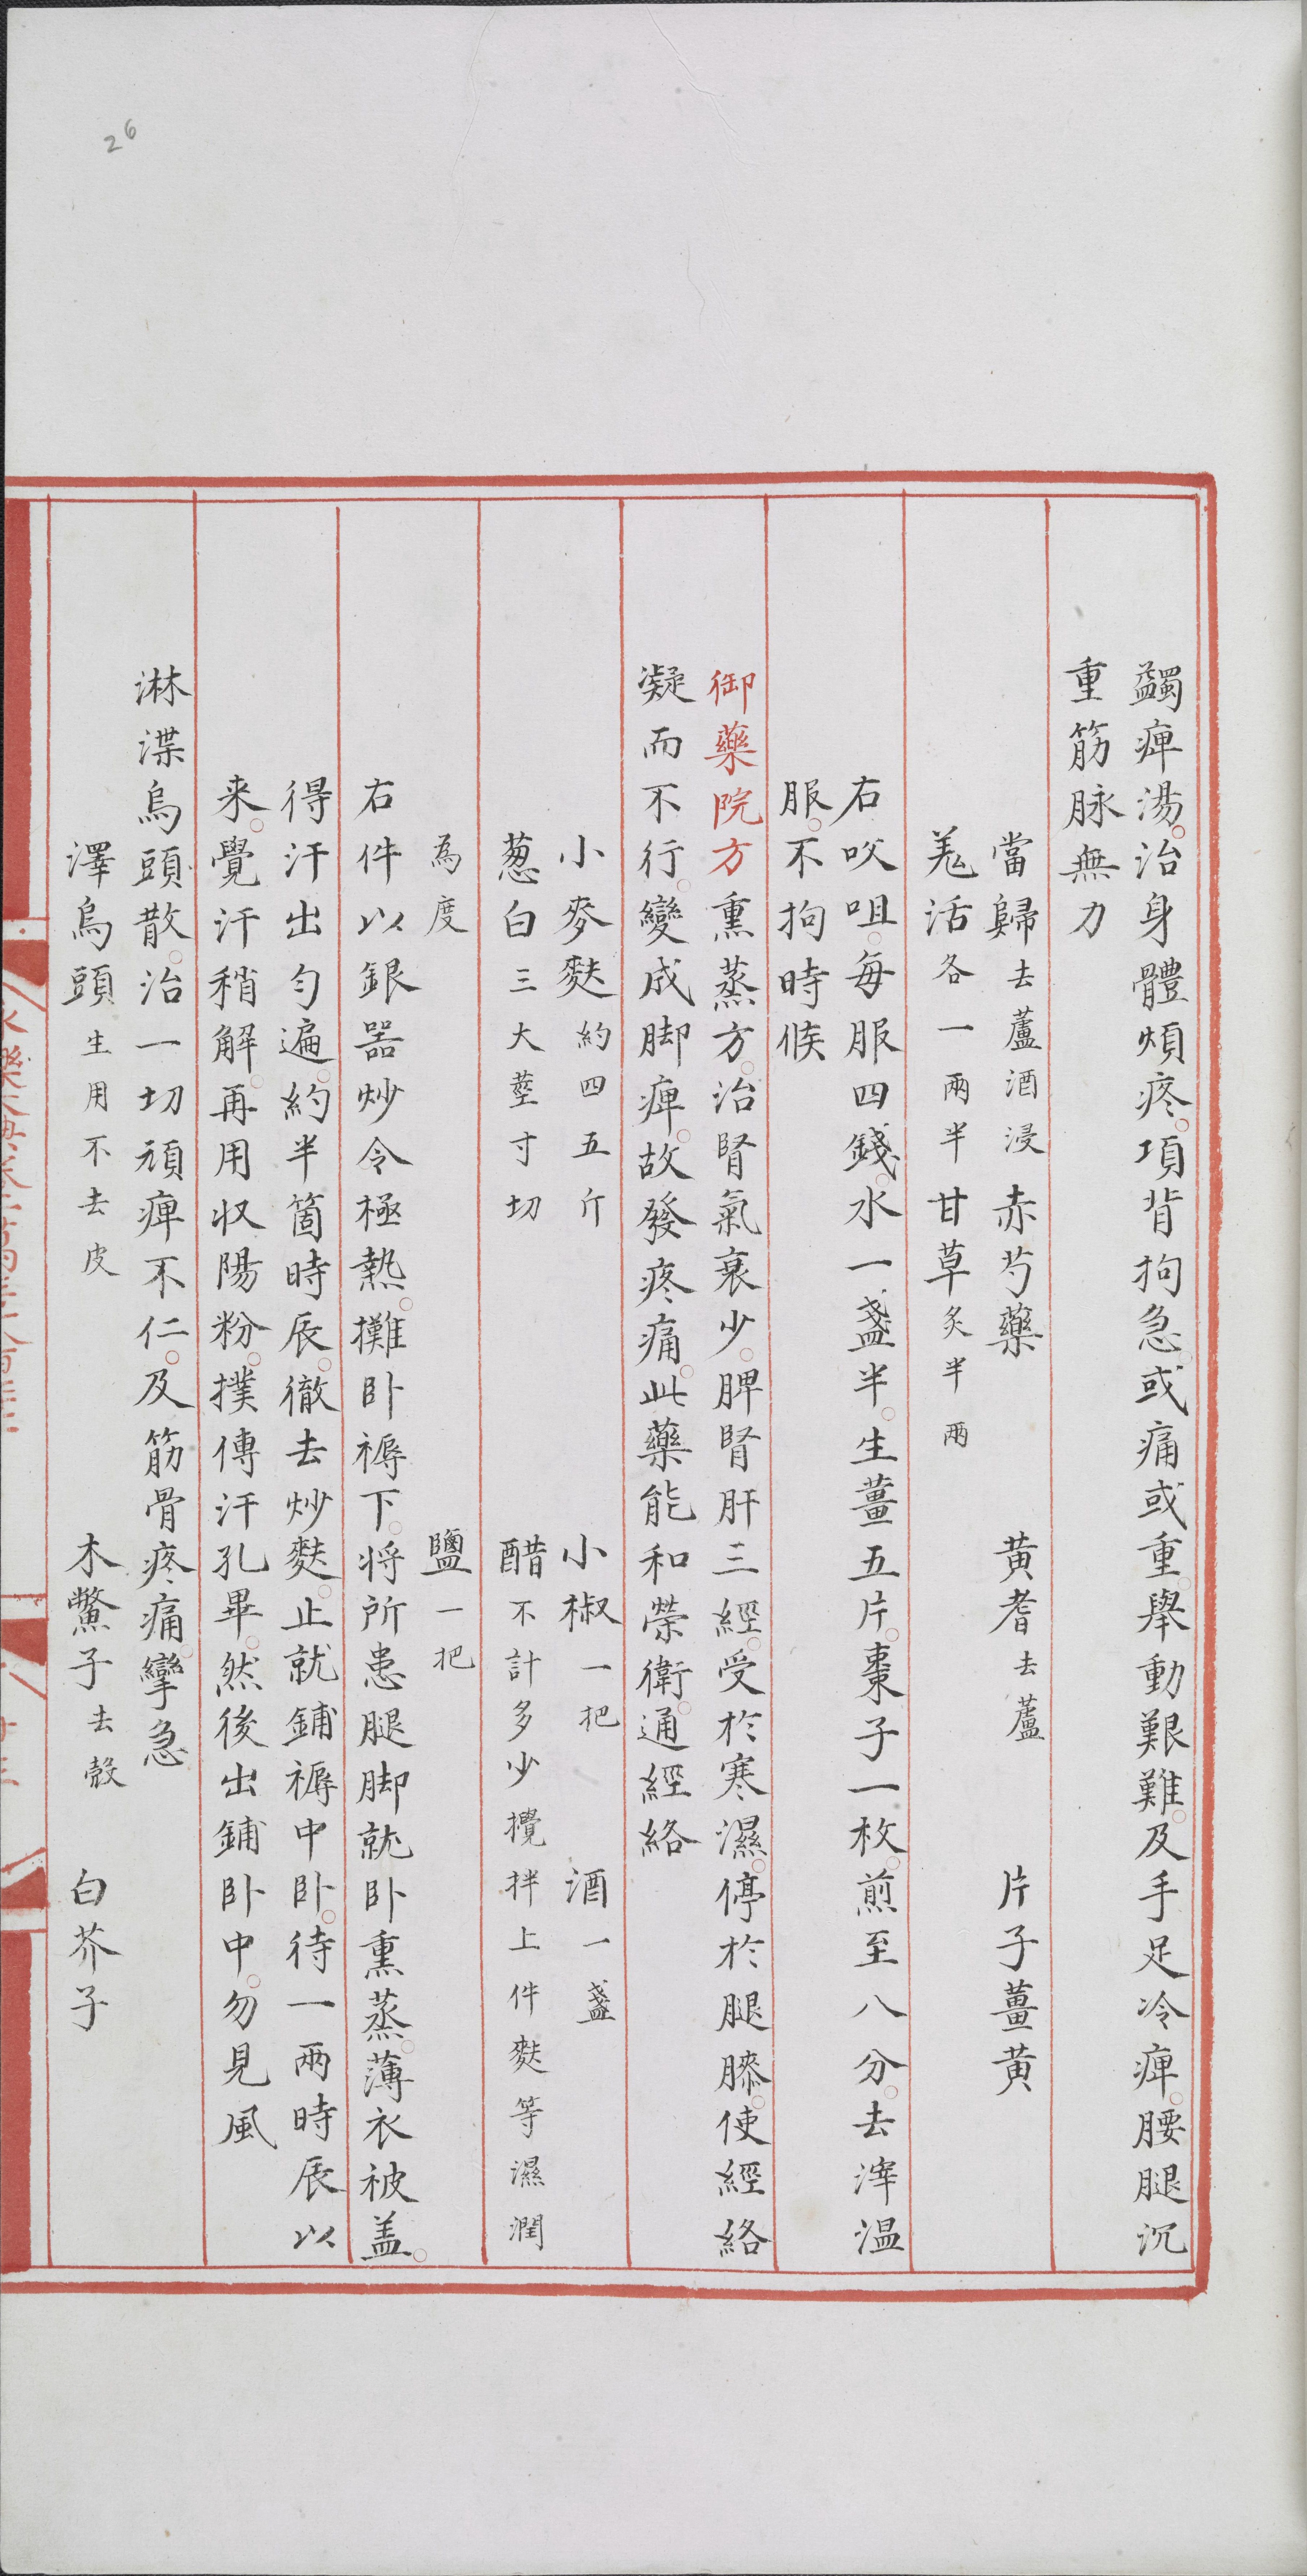 蠲痺湯。治身體煩疼。項背拘急。或痛或重。舉動艱難。及手足冷痺。腰腿沉
重筋脉無力
當歸去蘆酒浸 赤芍藥 黄耆去蘆 片子薑黄
羗活各一兩半 甘草炙半兩
右㕮咀。每服四錢。水一盞半。生薑五片。棗子一枚。煎至八分。去滓温
服。不拘時候
御藥院方熏蒸方。治腎氣衰少。脾腎肝三經。受於寒濕。停於腿膝。使經絡
凝而不行。變成脚痺。故發疼痛。此藥能和榮衛。通經絡
小麥麩約四五斤 小椒一把 酒一盞
葱白三大莖寸切 醋不計多少攪拌上件麩等濕潤
為度 鹽一把
右件以銀器炒令極熱。攤卧褥下。将所患腿脚就卧熏蒸。薄衣被盖。
得汗出匀遍。約半箇時辰。徹去炒麩。止就鋪褥中卧。待一兩時辰以
来。覺汗稍解。再用収陽粉。撲傅汗孔畢。然後出鋪卧中。勿見風
淋渫烏頭散。治一切頑痺不仁。及筋骨疼痛。攣急
澤烏頭生用不去皮 木鱉子去殻 白芥子
26